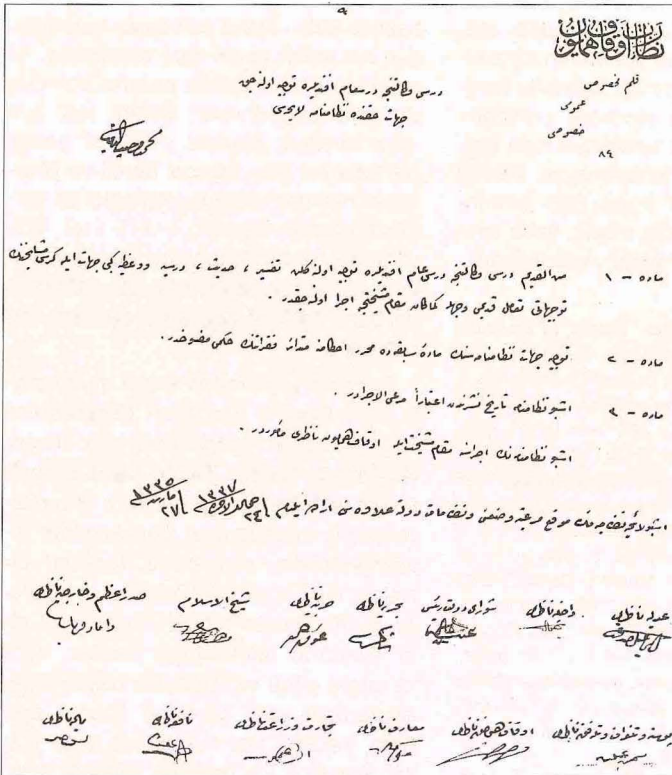 نظارت اوقاف همایون
قلم مخصوص
عمومی
خصوصی
٨٤
درس وكالتنجه درسعام افندیلره توجیه اوله جق
جهات حقنده نظامنامه لایحه سی
ماده - ١ من القدیم درس وكالتنجه درسعام افندیلره توجیه اولنه كلن تفسیر ، حدیث ، درسیه ووعظیه كبی جهات ایله كرسی مشایخنك
توجیهاتی تعامل قدیمی وجهله كماكان مقام مشیختجه اجرا اوله جقدر .
ماده - ٢ توجیه جهات نظامنامه سنك مادۀ سابقه ده محرر احكامه متدائر فقراتنك حكمی مفسوخدر .
ماده - ٣ اشبو نظامنامه تاریخ نشرندن اعتباراً مرعی الاجرادر .
اشبو نظامنامه نك اجراسنه مقام مشیخت ایله اوقاف همایون ناظری مأموردر .
اشبو لایحۀ نظامیه نك موقع مرعیته وضعنی ونظامات دولته علاوه سنی اراده ایلدم
٢٤ جمادی الاخره ١٣٣٧
٢٧ مارت ١٣٣٥
صدر اعظم وخارجیه ناظری شیخ الاسلام حربیه ناظری بحریه ناظری شورای دولت رئیسی داخلیه ناظری عدلیه ناظری
داماد فرید
مالیه ناظری نافعه ناظری تجارت وزراعت ناظری معارف ناظری اوقاف همایون ناظری پوسته وتلغراف وتلفون ناظری